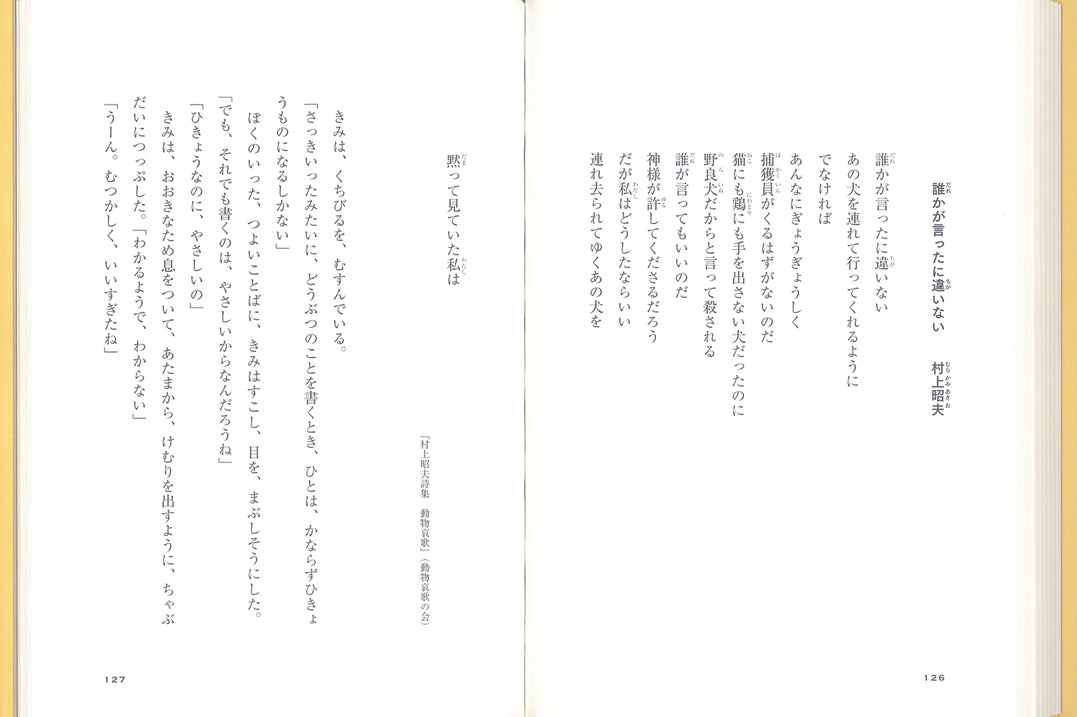 誰かが言ったに違いない　村上昭夫
誰かが言ったに違いない
あの犬を連れて行ってくれるように
でなければ
あんなにぎょうぎょうしく
捕獲員がくるはずがないのだ
猫にも鶏にも手を出さない犬だったのに
野良犬だからと言って殺される
誰が言ってもいいのだ
神様が許してくださるだろう
だが私はどうしたならいい
連れ去られてゆくあの犬を
126
黙って見ていた私は
『村上昭夫詩集　動物哀歌』（動物哀歌の会）
きみは、くちびるを、むすんでいる。
「さっきいったみたいに、どうぶつのことを書くとき、ひとは、かならずひきょ
うものになるしかない」
ぼくのいった、つよいことばに、きみはすこし、目を、まぶしそうにした。
「でも、それでも書くのは、やさしいからなんだろうね」
「ひきょうなのに、やさしいの」
きみは、おおきなため息をついて、あたまから、けむりを出すように、ちゃぶ
だいにつっぷした。「わかるようで、わからない」
「うーん。むつかしく、いいすぎたね」
127